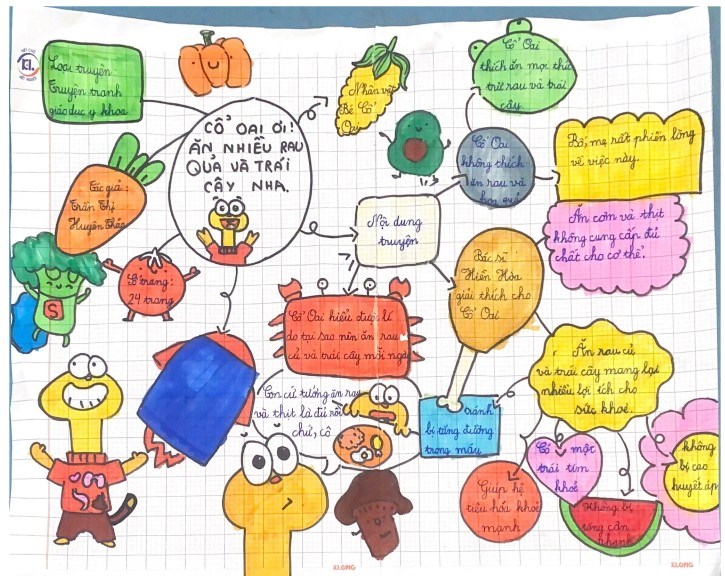 Loại truyện:
Truyện tranh
giáo dục y khoa
CỔ OAI ƠI!
ĂN NHIỀU RAU
QUẢ VÀ TRÁI
CÂY NHA.
Nhân vật
Bé Cổ
Oai
Cổ Oai
thích ăn mọi thứ
trừ rau và trái
cây.
Cổ Oai
không thích
ăn rau và
Bố, mẹ rất phiền lòng
về việc này.
Tác giả:
Trần Thị
Huyên Thảo
Số trang:
24 trang
Nội dung
truyện
Ăn cơm và thịt
không cung cấp đủ
chất cho cơ thể.
Bác sĩ
Hiền Hòa
giải thích cho
Cổ Oai
Cổ Oai hiểu được lí
do tại sao nên ăn rau
củ và trái cây mỗi ngày
Ăn rau củ
và trái cây mang lại
nhiều lợi ích cho
sức khoẻ.
Con cứ tưởng ăn rau
và thịt là đủ rồi
chứ, cô
tránh
bị tăng đường
trong máu
Giúp hệ
tiêu hóa khoẻ
mạnh
Có một
trái tim
khoẻ
Không bị
tăng cân
nhanh
không
bị cao
huyết áp
S
KLONG
KLONG